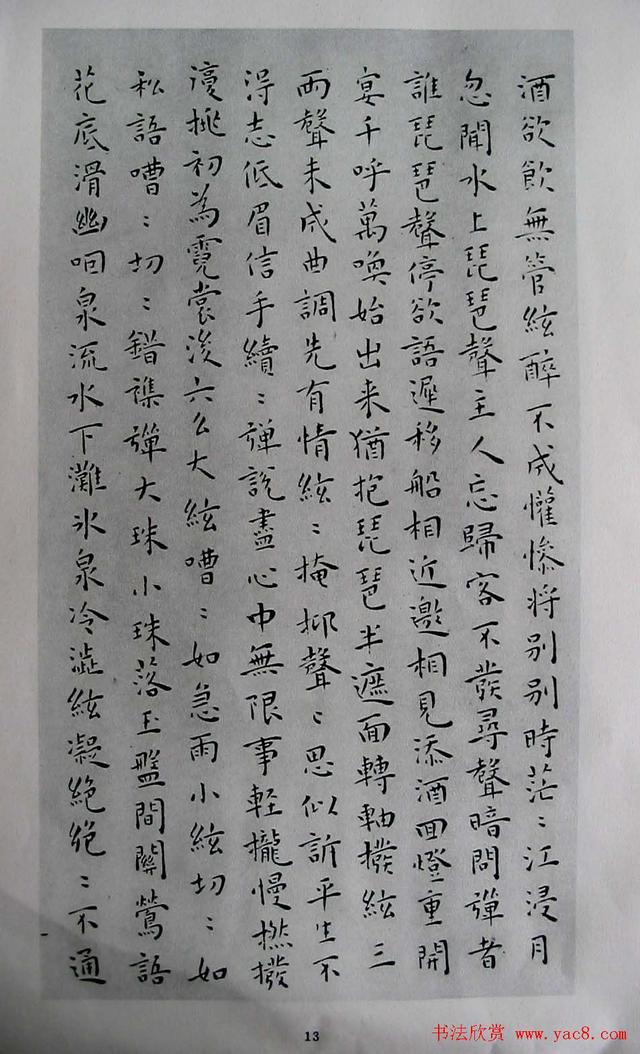 酒欲飲無管絃醉不成懽慘将别别時茫〻江浸月
忽聞水上琵琶聲主人忘歸客不發尋聲暗問彈者
誰琵琶聲停欲語遲移船相近邀相見添酒回燈重開
宴千呼萬喚始出来猶抱琵琶半遮面轉軸撥絃三
兩聲未成曲調先有情絃〻掩抑聲〻思似訴平生不
得志低眉信手續〻彈說盡心中無限事輕攏慢撚撥
復挑初為霓裳後六么大絃嘈〻如急雨小絃切〻如
私語嘈〻切〻錯襍彈大珠小珠落玉盤間關鶯語
花底滑幽咽泉流水下灘氷泉冷澁絃凝絶絶〻不通
13
书法欣赏 www.yac8.com